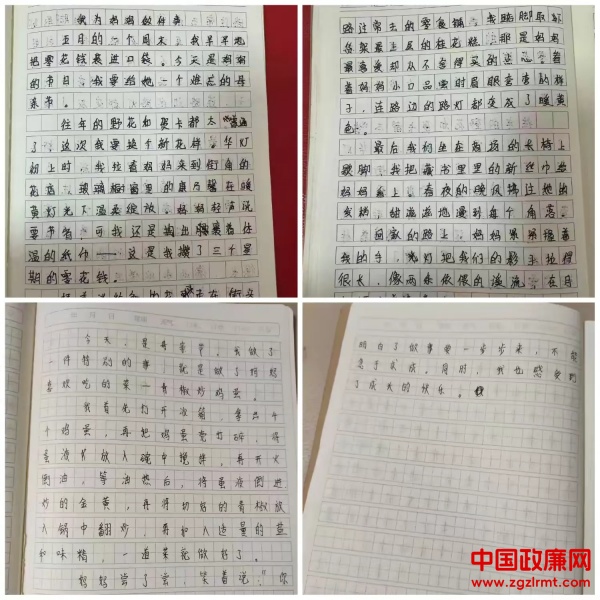 我为妈妈做件事
五月的一个周末，我早早地
把零花钱装进口袋。今天是妈妈
的节日，我要给她一个难忘的母
亲节。
往年的野花和贺卡都太普通
了，这次我要换个新花样。华灯
初上时，我拉着妈妈来到街角的
花店，玻璃橱窗里的康乃馨在暖
黄灯光下温柔绽放。妈妈轻声说
要节省，可我还是掏出揣着体
温的纸币——这是我攒了三个星
期的零花钱。
路过常去的零食铺，我踮脚取下
货架最上层的桂花糕。那是妈妈
最喜爱却从不舍得买的
着妈妈小口品尝时眉眼弯弯的样
子，连路边的路灯都变成了暖黄
色。
最后我们坐在广场的长椅上
歇脚，我把藏书里的新丝巾
妈妈系上。春夜的晚风拂过她的
发梢，甜滋滋地漫到每个角落。
回家的路上，妈妈紧紧握着
我的手，光灯把我们的影子拉得
很长，像两条依偎的溪流，在月
今天，是母亲节，我做了
一件特别的事，就是做了妈妈
喜欢吃的菜—青椒炒鸡蛋。
我首先打开冰箱，拿出
个鸡蛋，再把鸡蛋壳打碎，将
蛋液放入碗中搅拌，再开火
倒油，等油热后，将蛋液倒进
炒的金黄，再将切好的青椒放
入锅中翻炒，再加入适量的盐
和味精，一道菜就做好了。
妈妈尝了尝，笑着说：“你
明白了做事要一步步来，不能
急于求成，同时，我也感受到
了成长的快乐。
中国政廉网
www.zgzlrmt.com